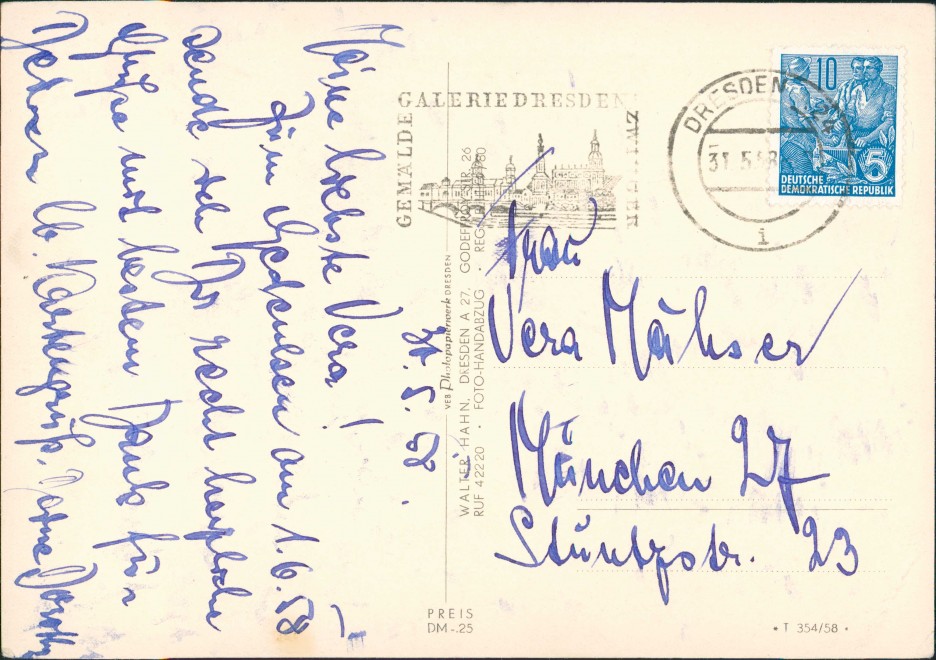 31.5.58.
Meine liebste Vera!
Zum Gedenken am 1.6.58
sende ich Dir recht herzliche
Grüße mit bestem Dank für
Deinen lb. Kartengruß. Deine
GEMÄLDE GALERIE DRESDEN ZWINGER
DRESDEN
31.5.58
i
10
5
DEUTSCHE
DEMOKRATISCHE REPUBLIK
Frau
Vera Mähser
München 27
Stuntzstr. 23
VEB Photopapierwerk DRESDEN
WALTER HAHN, DRESDEN A 27, GODEFFROYSTR. 26
RUF 42220 • FOTO-HANDABZUG • REG
PREIS
DM -.25
• T 354/58 •